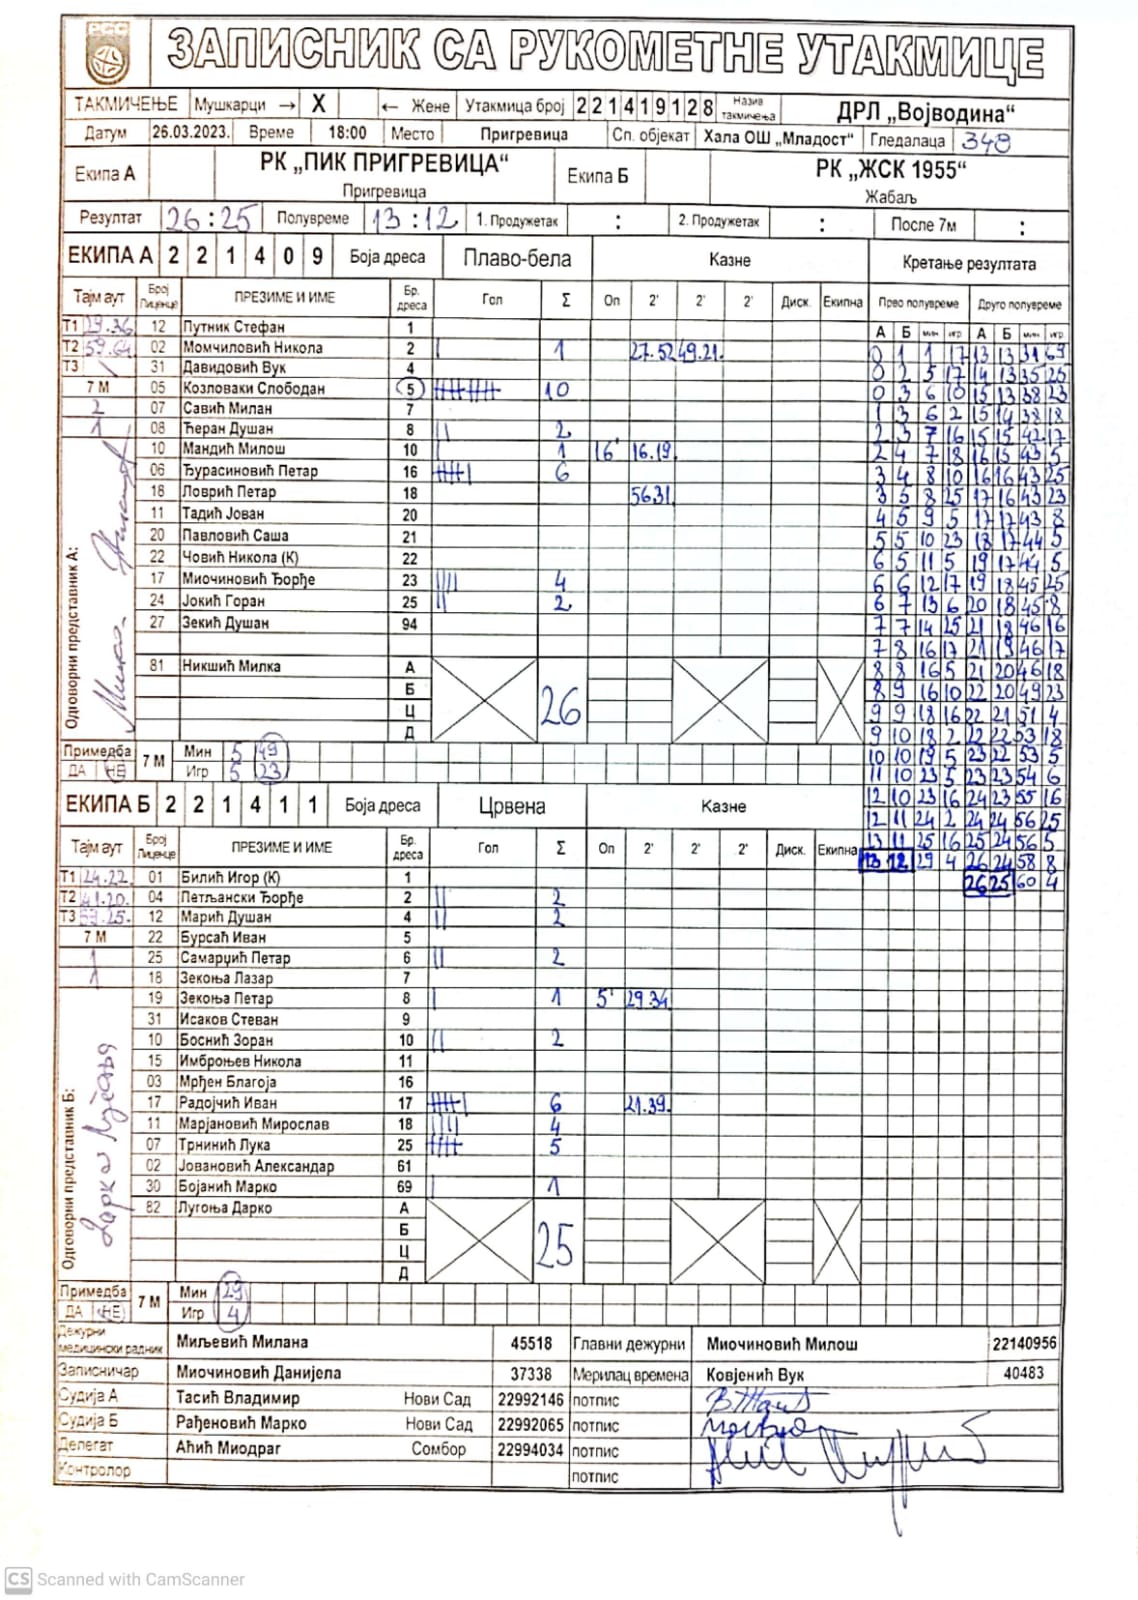 РСС
ЗАПИСНИК СА РУКОМЕТНЕ УТАКМИЦЕ
ТАКМИЧЕЊЕ Мушкарци → X ← Жене Утакмица број 2 2 1 4 1 9 1 2 8 Назив такмичења ДРЛ „Војводина“
Датум 26.03.2023. Време 18:00 Место Пригревица Сп. објекат Хала ОШ „Младост“ Гледалаца 349
Екипа А РК „ПИК ПРИГРЕВИЦА“ Пригревица Екипа Б РК „ЖСК 1955“ Жабаљ
Резултат 26:25 Полувреме 13:12 1. Продужетак : 2. Продужетак : После 7м :
ЕКИПА А 2 2 1 4 0 9 Боја дреса Плаво-бела Казне Кретање резултата
Тајм аут Број Лиценце ПРЕЗИМЕ И ИМЕ Бр. дреса Гол Σ Оп 2' 2' 2' Диск. Екипна Прво полувреме Друго полувреме
А Б мин игр А Б мин игр
Т1 29.36 12 Путник Стефан 1
Т2 59.64 02 Момчиловић Никола 2 | 1 27.52 49.21. 0 1 1 17 13 13 31 69
Т3 31 Давидовић Вук 4 0 2 5 17 14 13 35 25
7 М 05 Козловаки Слободан 5 10 0 3 6 10 15 13 38 23
2 07 Савић Милан 7 1 3 6 2 15 14 38 18
1 08 Ћеран Душан 8 || 2 2 3 7 16 15 15 42 17
10 Мандић Милош 10 | 1 16' 16.19. 2 4 7 18 16 15 43 5
06 Ђурасиновић Петар 16 6 3 4 8 10 16 16 43 25
18 Ловрић Петар 18 5631. 3 5 8 25 17 16 43 23
11 Тадић Јован 20 4 5 9 5 17 17 43 8
20 Павловић Саша 21 5 5 10 23 18 17 44 5
22 Човић Никола (К) 22 6 5 11 5 19 17 44 5
17 Миочиновић Ђорђе 23 |||| 4 6 6 12 17 19 18 45 25
24 Јокић Горан 25 || 2 6 7 13 6 20 18 45 8
27 Зекић Душан 94 7 7 14 25 21 18 46 16
7 8 16 17 21 19 46 17
81 Никшић Милка А 8 8 16 5 21 20 46 18
Б 26 8 9 16 10 22 20 49 23
Ц 9 9 18 16 22 21 51 4
Д 9 10 18 2 22 22 53 18
Одговорни представник А:
Примедба 7 М Мин 5 49 10 10 19 5 23 22 53 5
ДА НЕ Игр 5 23 11 10 23 5 23 23 54 6
ЕКИПА Б 2 2 1 4 1 1 Боја дреса Црвена Казне 12 10 23 16 24 23 55 16
12 11 24 2 24 24 56 25
Тајм аут Број Лиценце ПРЕЗИМЕ И ИМЕ Бр. дреса Гол Σ Оп 2' 2' 2' Диск. Екипна 13 11 25 16 25 24 56 5
13 12 29 4 26 24 58 8
Т1 24.22. 01 Билић Игор (К) 1 26 25 60 4
Т2 41.20. 04 Петљански Ђорђе 2 || 2
Т3 59.25. 12 Марић Душан 4 || 2
7 М 22 Бурсаћ Иван 5
1 25 Самарџић Петар 6 || 2
1 18 Зекоња Лазар 7
19 Зекоња Петар 8 | 1 5' 29.34
31 Исаков Стеван 9
10 Боснић Зоран 10 || 2
15 Имброњев Никола 11
03 Мрђен Благоја 16
17 Радојчић Иван 17 6 21.39.
11 Марјановић Мирослав 18 |||| 4
07 Трнинић Лука 25 5
02 Јовановић Александар 61
30 Бојанић Марко 69 | 1
82 Лугоња Дарко А
Б 25
Ц
Д
Одговорни представник Б:
Примедба 7 М Мин 29
ДА НЕ Игр 4
Дежурни медицински радник Миљевић Милана 45518 Главни дежурни Миочиновић Милош 22140956
Записничар Миочиновић Данијела 37338 Мерилац времена Ковјенић Вук 40483
Судија А Тасић Владимир Нови Сад 22992146 потпис
Судија Б Рађеновић Марко Нови Сад 22992065 потпис
Делегат Аћић Миодраг Сомбор 22994034 потпис
Контролор потпис
CS Scanned with CamScanner